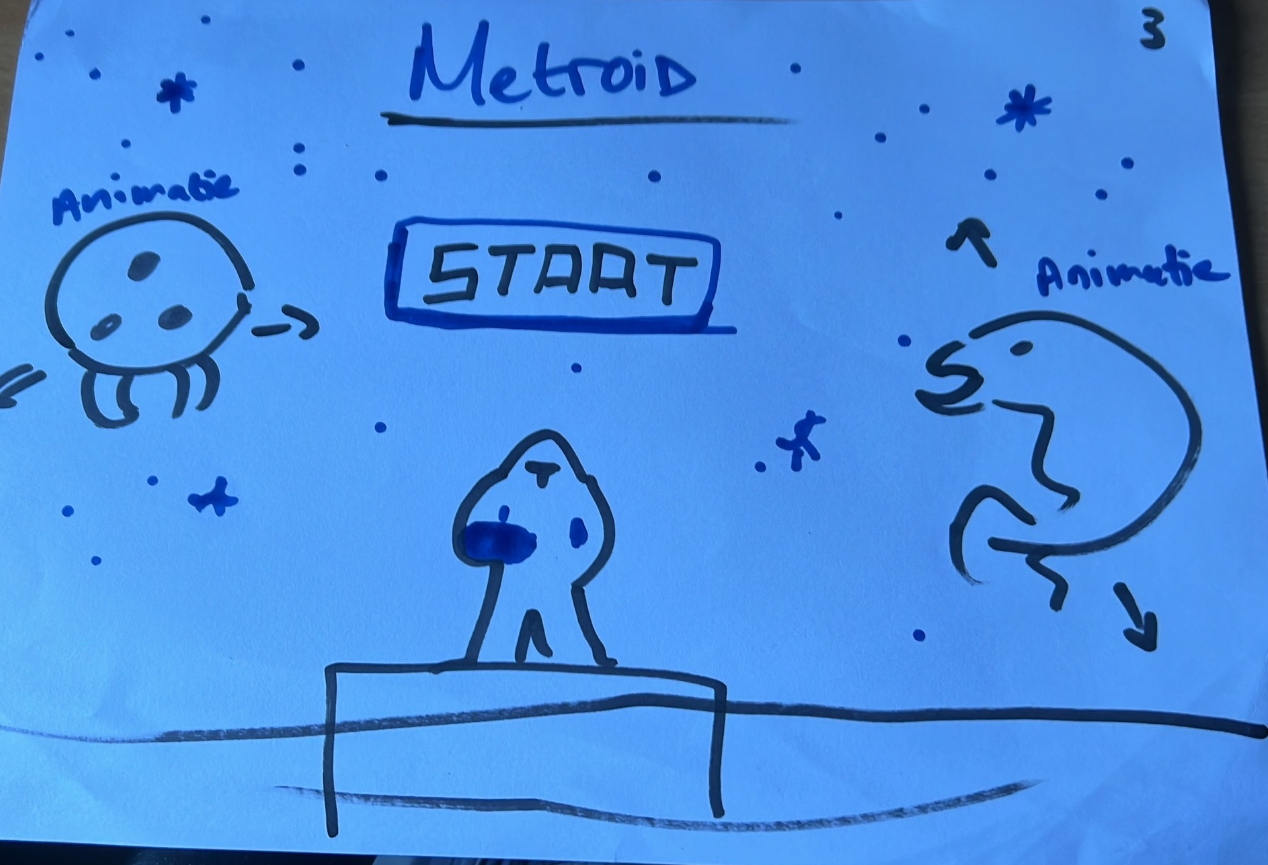 3
Metroid
Animatie
START
Animatie